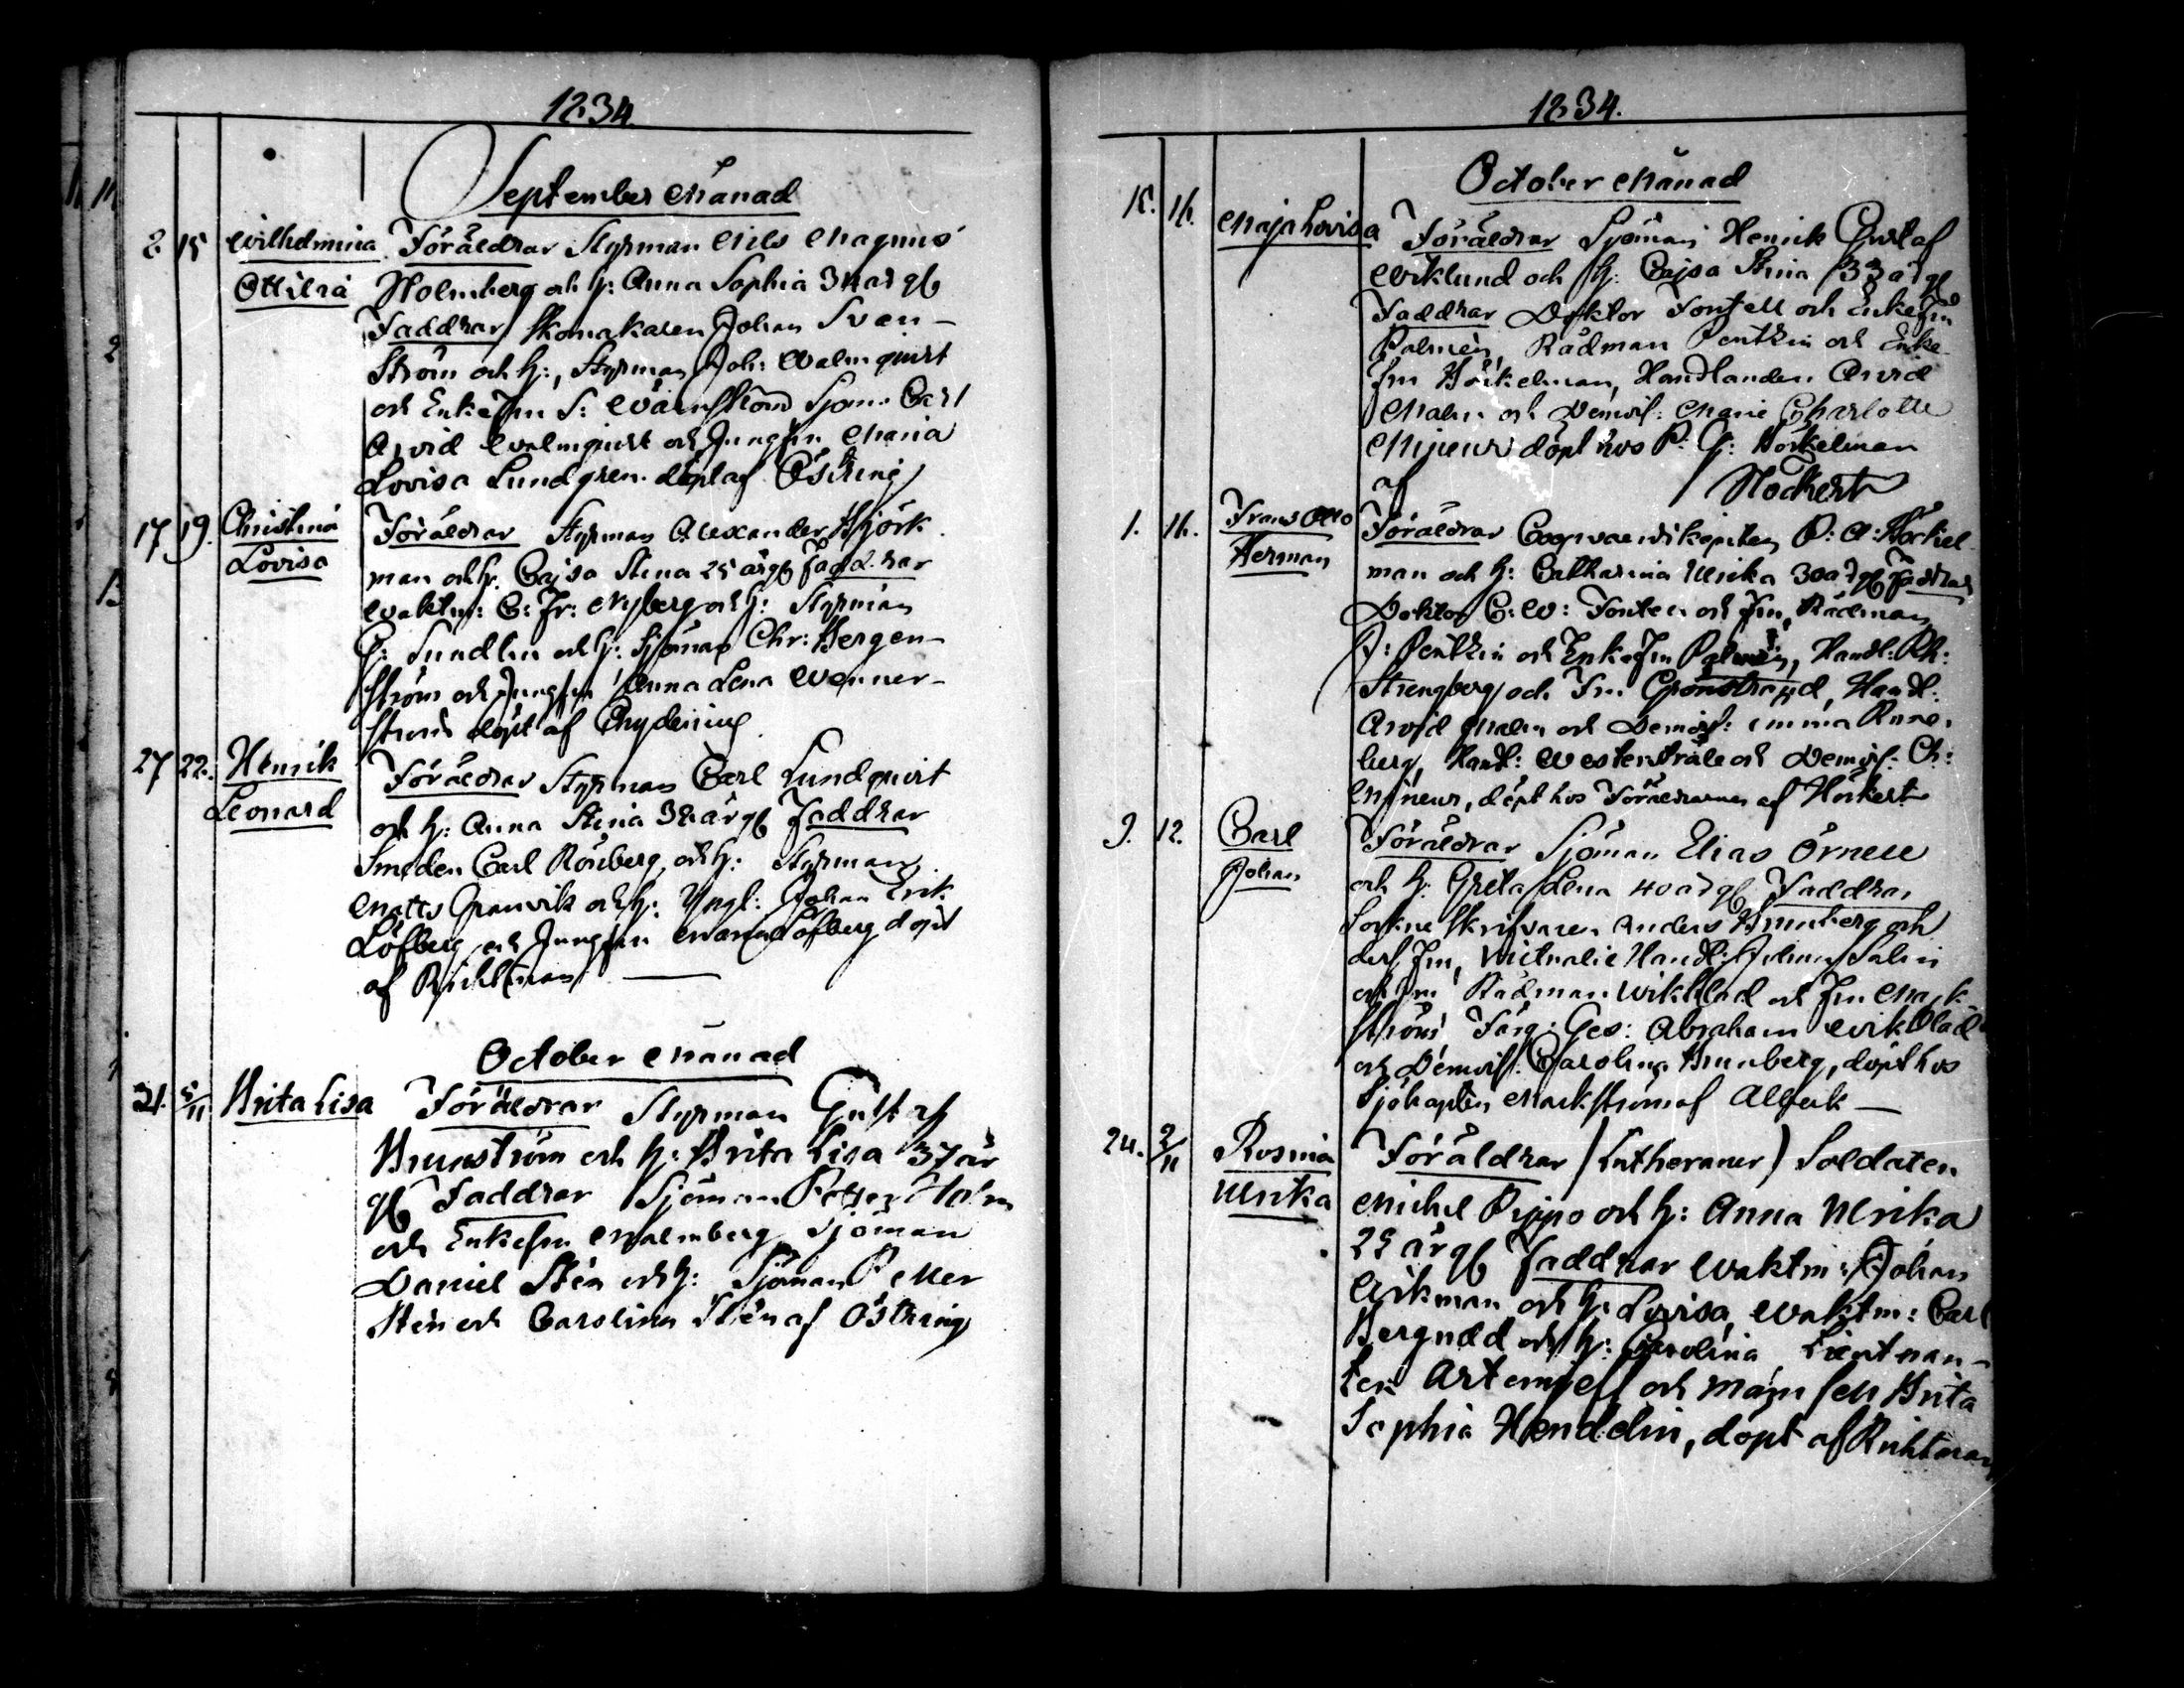 1834.
September Månad
8 15 Wilhelmina Föräldrar Styrman Nils Magnus
Ottilia Holmberg och h: Anna Sophia 34 år gl
Faddrar Skomakaren Johan Sven-
ström och h:, Styrman Joh: Malmquist
och Enkefru S: Wärnström Sjöm: Carl
Arvid Malmquist och Jungfru Maria
Lovisa Lundgren. döpt af Östring
17 19. Christina Föräldrar Styrman Alexander Björk
Lovisa man och h: Cajsa Stina 25 år gl Faddrar
Waktm: C: Fr: Nyberg och h: Styrman
Sundlin och h: Sjöman Chr: Bergen-
ström och Jungfru Anna Lena Wenner-
ström döpt af Chydenius
27 22. Henrik Föräldrar Styrman Carl Lundqvist
Leonard och h: Anna Stina 38 år gl Faddrar
Smeden Carl Rönberg, och h: Styrman
Matts Granvik och h: Yngl: Johan Erik
Löfberg och Jungfru Maria Löfberg döpt
af Richtman
October Månad
21. 5/11 Brita Lisa Föräldrar Styrman Gustaf
Brunström och h: Brita Lisa 37 år
gl Faddrar Sjöman Petter Holm
och Enkefru Malmberg Sjöman
Daniel Stén och h: Sjöman Petter
Stén och Carolina Stén af Östring
1834.
October Månad
15. 16. Maja Lovisa Föräldrar Sjöman Henrik Gustaf
Wiklund och h: Cajsa Stina 33 år gl
Faddrar Doktor Fontell och Enkefru
Palmén, Rådman Pentzin och Enke-
fru Höckelman, Handlanden Arvid
Malm och Demois: Marie Charlotte
döpt hos P: G: Höckelman
af Höckert
1. 16. Frans Otto Föräldrar Coopvaerdikapiten P: G: Höckel
Herman man och h: Catharina Ulrika 30 år gl Faddrar
Doktor C: W: Fontell och Fru, Rådman
Pentzin och Enkefru Palmén, Handl:
Strengberg och Fru Grönstrand, Handl:
Arvid Malm och Demois: Emma Rune-
berg, Handl: Westerstråle och Demois: Ch:
döpt hos Föräldrarne af Höckert
9. 12. Carl Föräldrar Sjöman Elias Örnell
Johan och h: Greta Lena 40 år gl Faddrar
Sockne Skrifvaren Anders Brunberg och
dess Fru, Victualie Handl: Johan Salin
och Fru Rådman Wikblad och Fru Mark-
ström, Färg: Ges: Abraham Wikblad
och Demois: Carolina Brunberg, döpt hos
Sjökapten Markström af Alfeck
24. 2/11 Rosina Föräldrar (Lutheraner) Soldaten
Ulrika Michel Peppo och h: Anna Ulrika
25 år gl Faddrar Waktm: Johan
Ekman och h: Lovisa, Waktm: Carl
Bergnäd och h: Carolina Lieutnan-
ten Artemjeff och mamsell Brita
Sophia Hendelin, döpt af Richtman